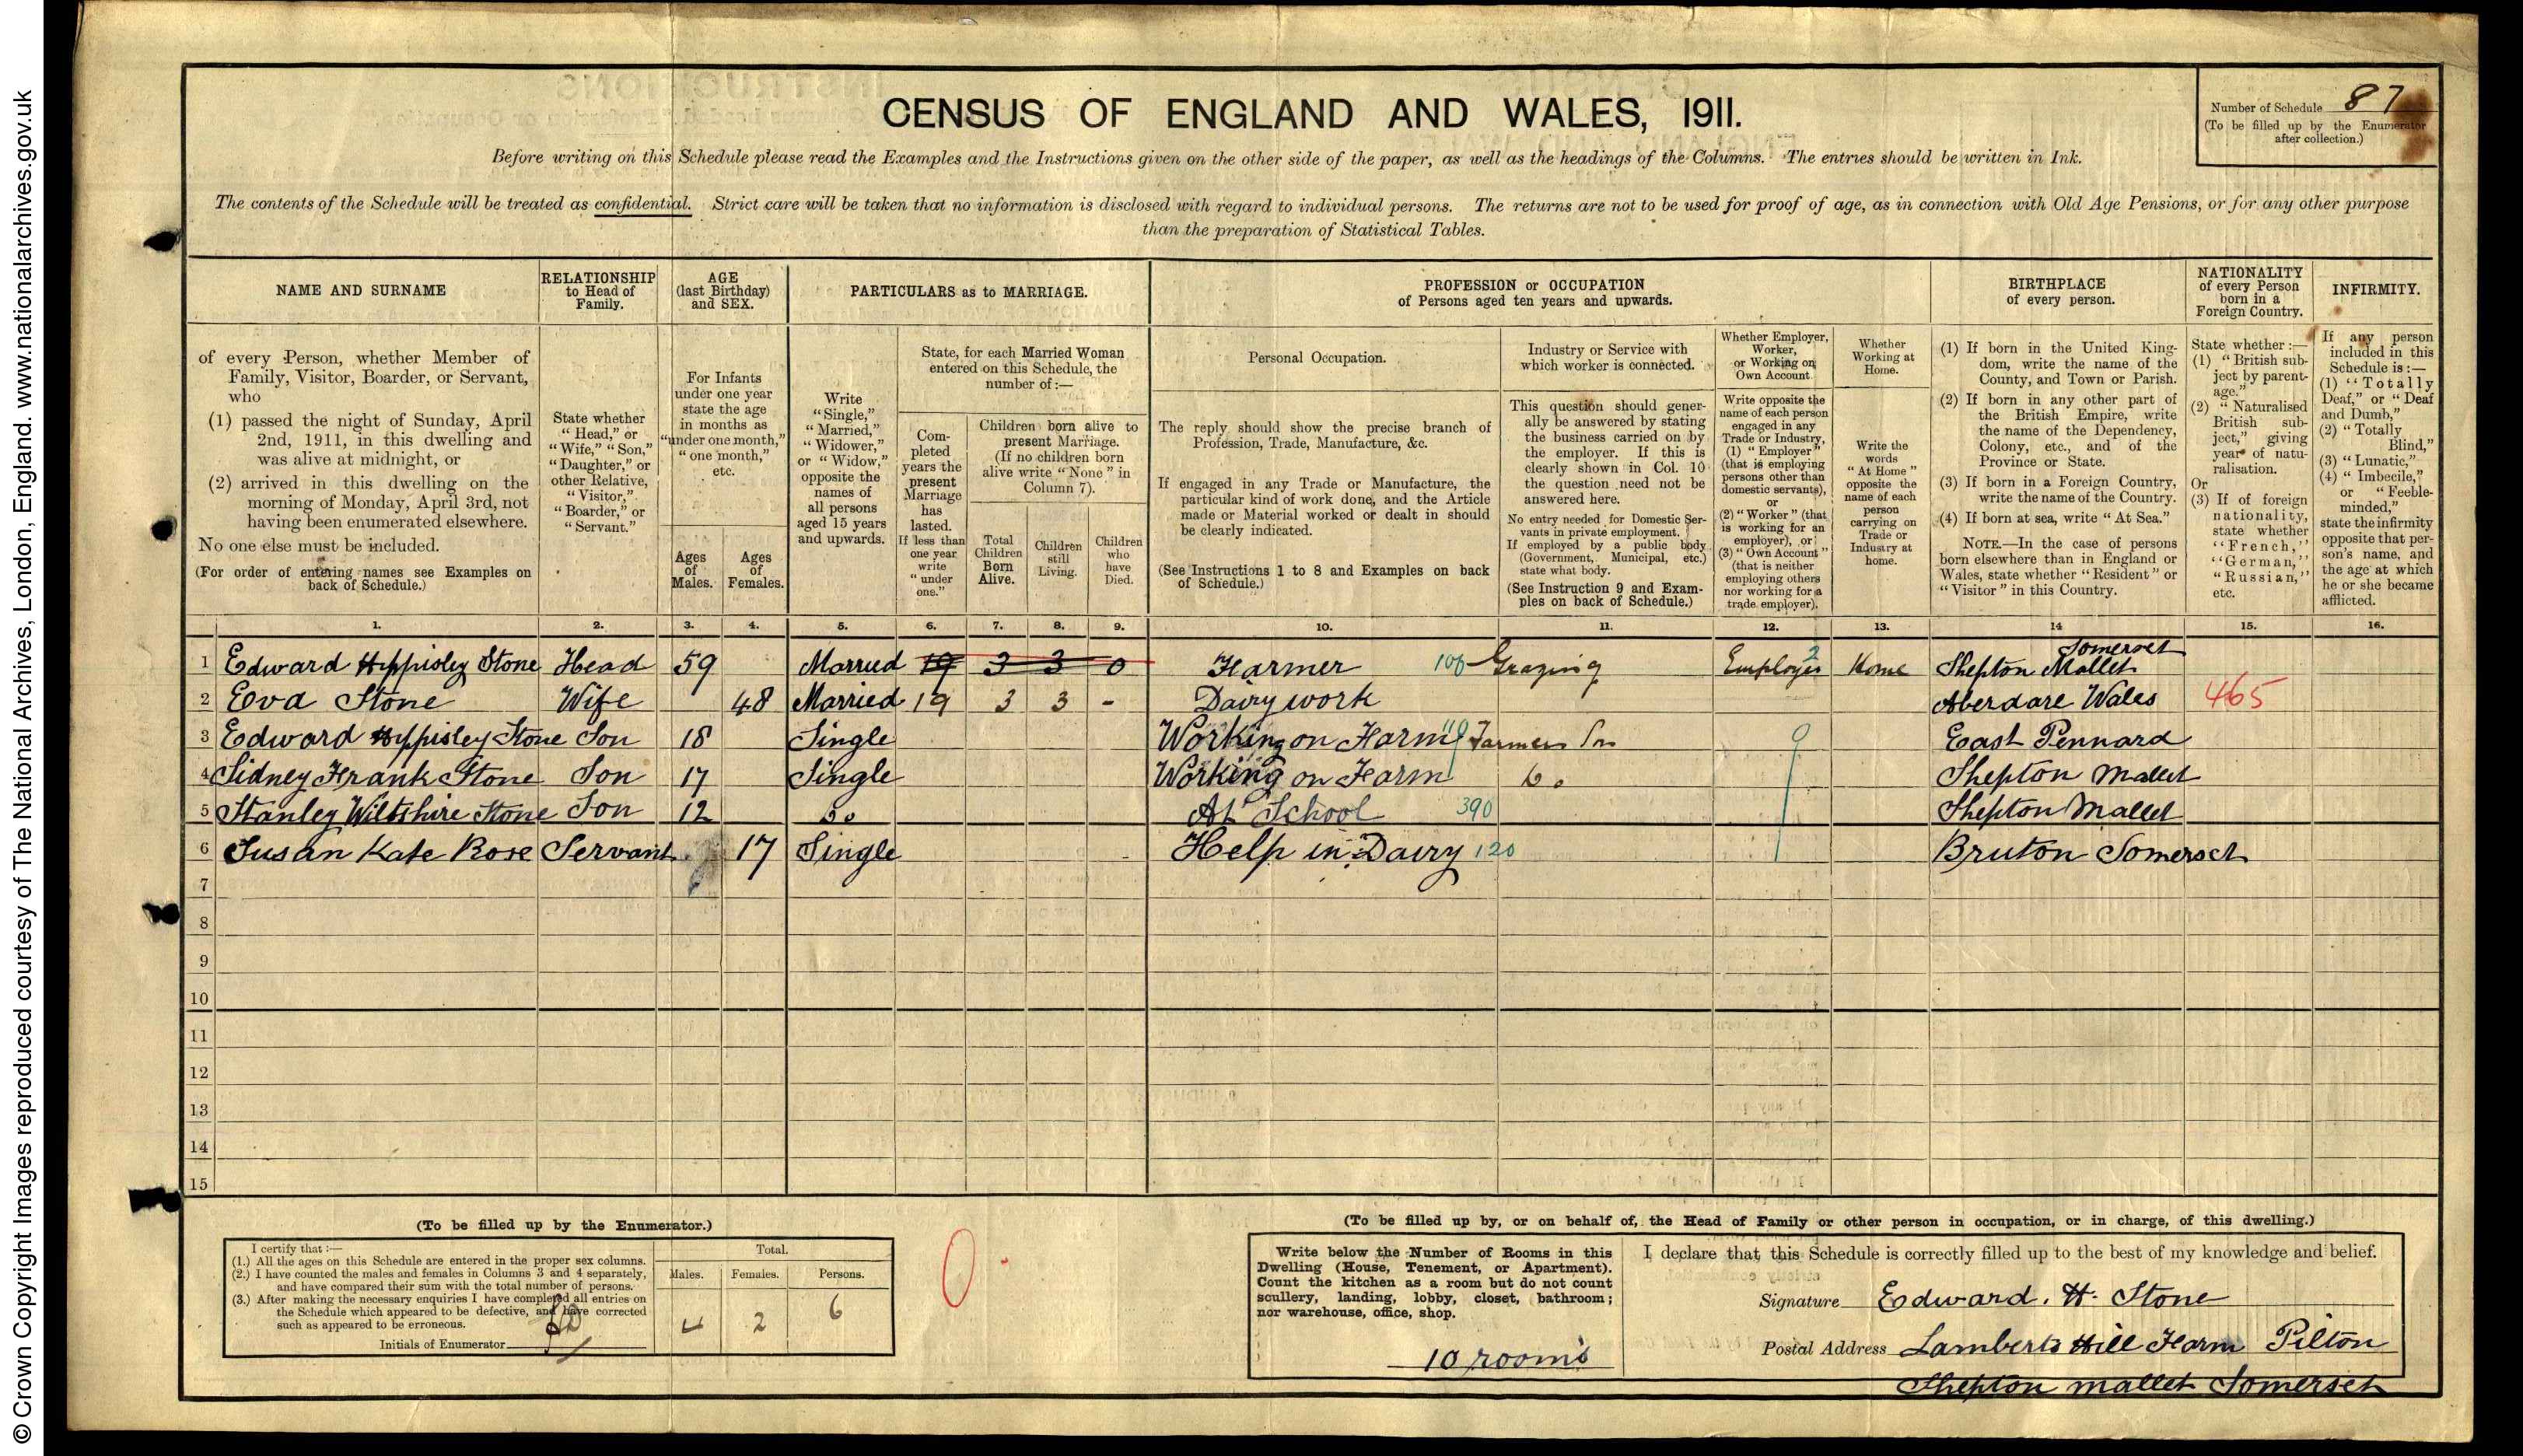 © Crown Copyright Images reproduced courtesy of The National Archives, London, England. www.nationalarchives.gov.uk
CENSUS OF ENGLAND AND WALES, 1911.
Number of Schedule 87
(To be filled up by the Enumerator
after collection.)
Before writing on this Schedule please read the Examples and the Instructions given on the other side of the paper, as well as the headings of the Columns. The entries should be written in Ink.
The contents of the Schedule will be treated as confidential. Strict care will be taken that no information is disclosed with regard to individual persons. The returns are not to be used for proof of age, as in connection with Old Age Pensions, or for any other purpose
than the preparation of Statistical Tables.
NAME AND SURNAME
of every Person, whether Member of
Family, Visitor, Boarder, or Servant,
who
(1) passed the night of Sunday, April
2nd, 1911, in this dwelling and
was alive at midnight, or
(2) arrived in this dwelling on the
morning of Monday, April 3rd, not
having been enumerated elsewhere.
No one else must be included.
(For order of entering names see Examples on
back of Schedule.)
RELATIONSHIP
to Head of
Family.
State whether
"Head," or
"Wife," "Son,"
"Daughter," or
other Relative,
"Visitor,"
"Boarder," or
"Servant."
AGE
(last Birthday)
and SEX.
For Infants
under one year
state the age
in months as
"under one month,"
"one month,"
etc.
Ages
of
Males.
Ages
of
Females.
PARTICULARS as to MARRIAGE.
Write
"Single,"
"Married,"
"Widower,"
or "Widow,"
opposite the
names of
all persons
aged 15 years
and upwards.
State, for each Married Woman
entered on this Schedule, the
number of:—
Com-
pleted
years the
present
Marriage
has
lasted.
If less than
one year
write
"under
one."
Children born alive to
present Marriage.
(If no children born
alive write "None" in
Column 7).
Total
Children
Born
Alive.
Children
still
Living.
Children
who
have
Died.
PROFESSION or OCCUPATION
of Persons aged ten years and upwards.
Personal Occupation.
The reply should show the precise branch of
Profession, Trade, Manufacture, &c.
If engaged in any Trade or Manufacture, the
particular kind of work done, and the Article
made or Material worked or dealt in should
be clearly indicated.
(See Instructions 1 to 8 and Examples on back
of Schedule.)
Industry or Service with
which worker is connected.
This question should gener-
ally be answered by stating
the business carried on by
the employer. If this is
clearly shown in Col. 10
the question need not be
answered here.
No entry needed for Domestic Ser-
vants in private employment.
If employed by a public body
(Government, Municipal, etc.)
state what body.
(See Instruction 9 and Exam-
ples on back of Schedule.)
Whether Employer,
Worker,
or Working on
Own Account.
Write opposite the
name of each person
engaged in any
Trade or Industry,
(1) "Employer"
(that is employing
persons other than
domestic servants),
or
(2) "Worker" (that
is working for an
employer), or
(3) "Own Account"
(that is neither
employing others
nor working for a
trade employer).
Whether
Working at
Home.
Write the
words
"At Home"
opposite the
name of each
person
carrying on
Trade or
Industry at
home.
BIRTHPLACE
of every person.
(1) If born in the United King-
dom, write the name of the
County, and Town or Parish.
(2) If born in any other part of
the British Empire, write
the name of the Dependency,
Colony, etc., and of the
Province or State.
(3) If born in a Foreign Country,
write the name of the Country.
(4) If born at sea, write "At Sea."
NOTE.—In the case of persons
born elsewhere than in England or
Wales, state whether "Resident" or
"Visitor" in this Country.
NATIONALITY
of every Person
born in a
Foreign Country.
State whether:—
(1) "British sub-
ject by parent-
age."
(2) "Naturalised
British sub-
ject," giving
year of natu-
ralisation.
Or
(3) If of foreign
nationality,
state whether
"French,"
"German,"
"Russian,"
etc.
INFIRMITY.
If any person
included in this
Schedule is:—
(1) "Totally
Deaf," or "Deaf
and Dumb,"
(2) "Totally
Blind,"
(3) "Lunatic,"
(4) "Imbecile,"
or "Feeble-
minded,"
state the infirmity
opposite that per-
son's name, and
the age at which
he or she became
afflicted.
1. 2. 3. 4. 5. 6. 7. 8. 9. 10. 11. 12. 13. 14 15. 16.
Somerset
1 Edward Hippisley Stone Head 59 Married 19 3 3 0 Farmer 100 Grazing Employer 2 Home Shepton Mallet
2 Eva Stone Wife 48 Married 19 3 3 - Dairy work Aberdare Wales 465
3 Edward Hippisley Stone Son 18 Single Working on Farm 110 Farmers Son Eaast Pennard
4 Sidney Frank Stone Son 17 Single Working on Farm Do Shepton Mallet
5 Stanley Wiltshire Stone Son 12 Do At School 390 Shepton Mallet
6 Susan Kate Rose Servant 17 Single Help in Dairy 120 Bruton Somerset
7
8
9
10
11
12
13
14
15
(To be filled up by the Enumerator.)
I certify that:—
(1.) All the ages on this Schedule are entered in the proper sex columns.
(2.) I have counted the males and females in Columns 3 and 4 separately,
and have compared their sum with the total number of persons.
(3.) After making the necessary enquiries I have completed all entries on
the Schedule which appeared to be defective, and have corrected
such as appeared to be erroneous.
Initials of Enumerator
Total.
Males. Females. Persons.
4 2 6
0
(To be filled up by, or on behalf of, the Head of Family or other person in occupation, or in charge, of this dwelling.)
Write below the Number of Rooms in this
Dwelling (House, Tenement, or Apartment).
Count the kitchen as a room but do not count
scullery, landing, lobby, closet, bathroom;
nor warehouse, office, shop.
10 rooms
I declare that this Schedule is correctly filled up to the best of my knowledge and belief.
Signature Edward. H. Stone
Postal Address Lamberts Hill Farm Pilton
Shepton mallet Somerset